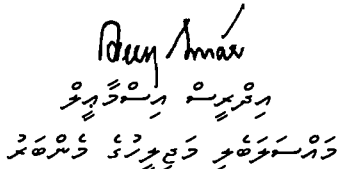 އިދްރީސް އިސްމާޢީލް
މައްސަލަބެލި މަޖިލީހުގެ މެންބަރު